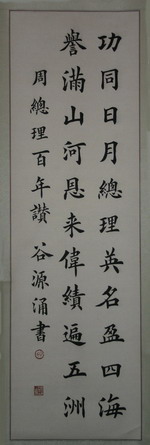 功同日月總理英名盈四海
譽滿山河恩来偉績遍五洲
周總理百年讚 谷源涌書